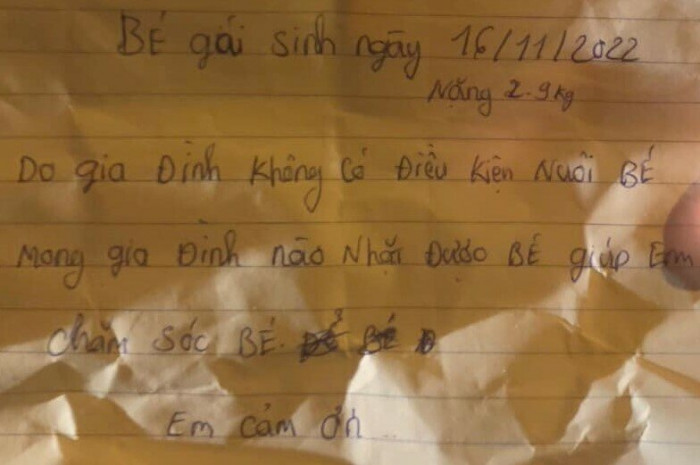 BÉ gái sinh ngày 16/11/2022
Nặng 2.9kg
Do gia Đình Không Có Điều Kiện Nuôi BÉ
Mong gia Đình nào Nhặt Được BÉ giúp Em
chăm sóc BÉ.
Em cảm ơn..